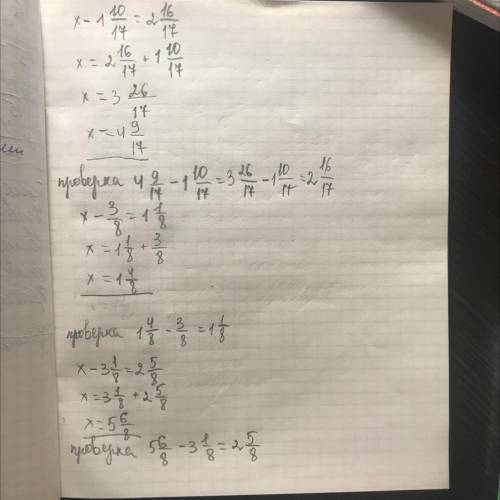 x - 1 10/17 = 2 16/17
x = 2 16/17 + 1 10/17
x = 3 26/17
x = 4 9/17
проверка 4 9/17 - 1 10/17 = 3 26/17 - 1 10/17 = 2 16/17
x - 3/8 = 1 1/8
x = 1 1/8 + 3/8
x = 1 4/8
проверка 1 4/8 - 3/8 = 1 1/8
x - 3 1/8 = 2 5/8
x = 3 1/8 + 2 5/8
x = 5 6/8
проверка 5 6/8 - 3 1/8 = 2 5/8